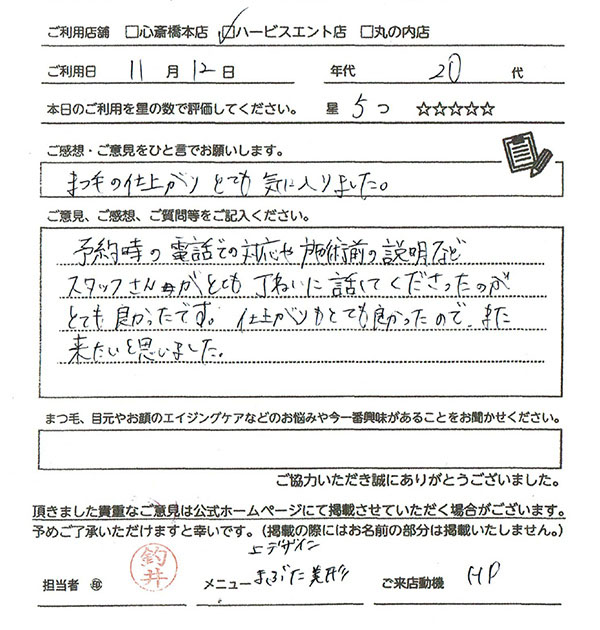 ご利用店舗 □心斎橋本店 ☑ハービスエント店 □丸の内店
ご利用日 11月12日 年代 20代
本日のご利用を星の数で評価してください。 星 5つ ☆☆☆☆☆
ご感想・ご意見をひと言でお願いします。
まつ毛の仕上がりとても気に入りました。
ご意見、ご感想、ご質問等をご記入ください。
予約時の電話での対応や施術前の説明など
スタッフさんがとても丁ねいに話してくださったのが
とても良かったです。仕上がりもとても良かったので、また
来たいと思いました。
まつ毛、目元やお顔のエイジングケアなどのお悩みや今一番興味があることをお聞かせください。
ご協力いただき誠にありがとうございました。
頂きました貴重なご意見は公式ホームページにて掲載させていただく場合がございます。
予めご了承いただけますと幸いです。(掲載の際にはお名前の部分は掲載いたしません。)
上デザイン
担当者 ㊞ 釣井 メニュー まぶた美形 ご来店動機 HP